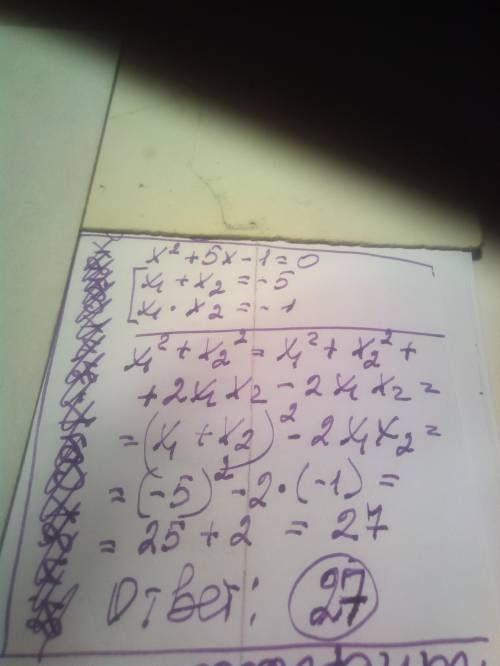 x² + 5x - 1 = 0
[ x₁ + x₂ = -5
x₁ · x₂ = -1
x₁² + x₂² = x₁² + x₂² +
+ 2x₁x₂ - 2x₁x₂ =
= (x₁ + x₂)² - 2x₁x₂ =
= (-5)² - 2·(-1) =
= 25 + 2 = 27
Ответ: 27